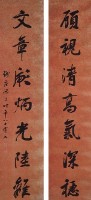 顧視清高氣深穩
文章彪炳光陸離